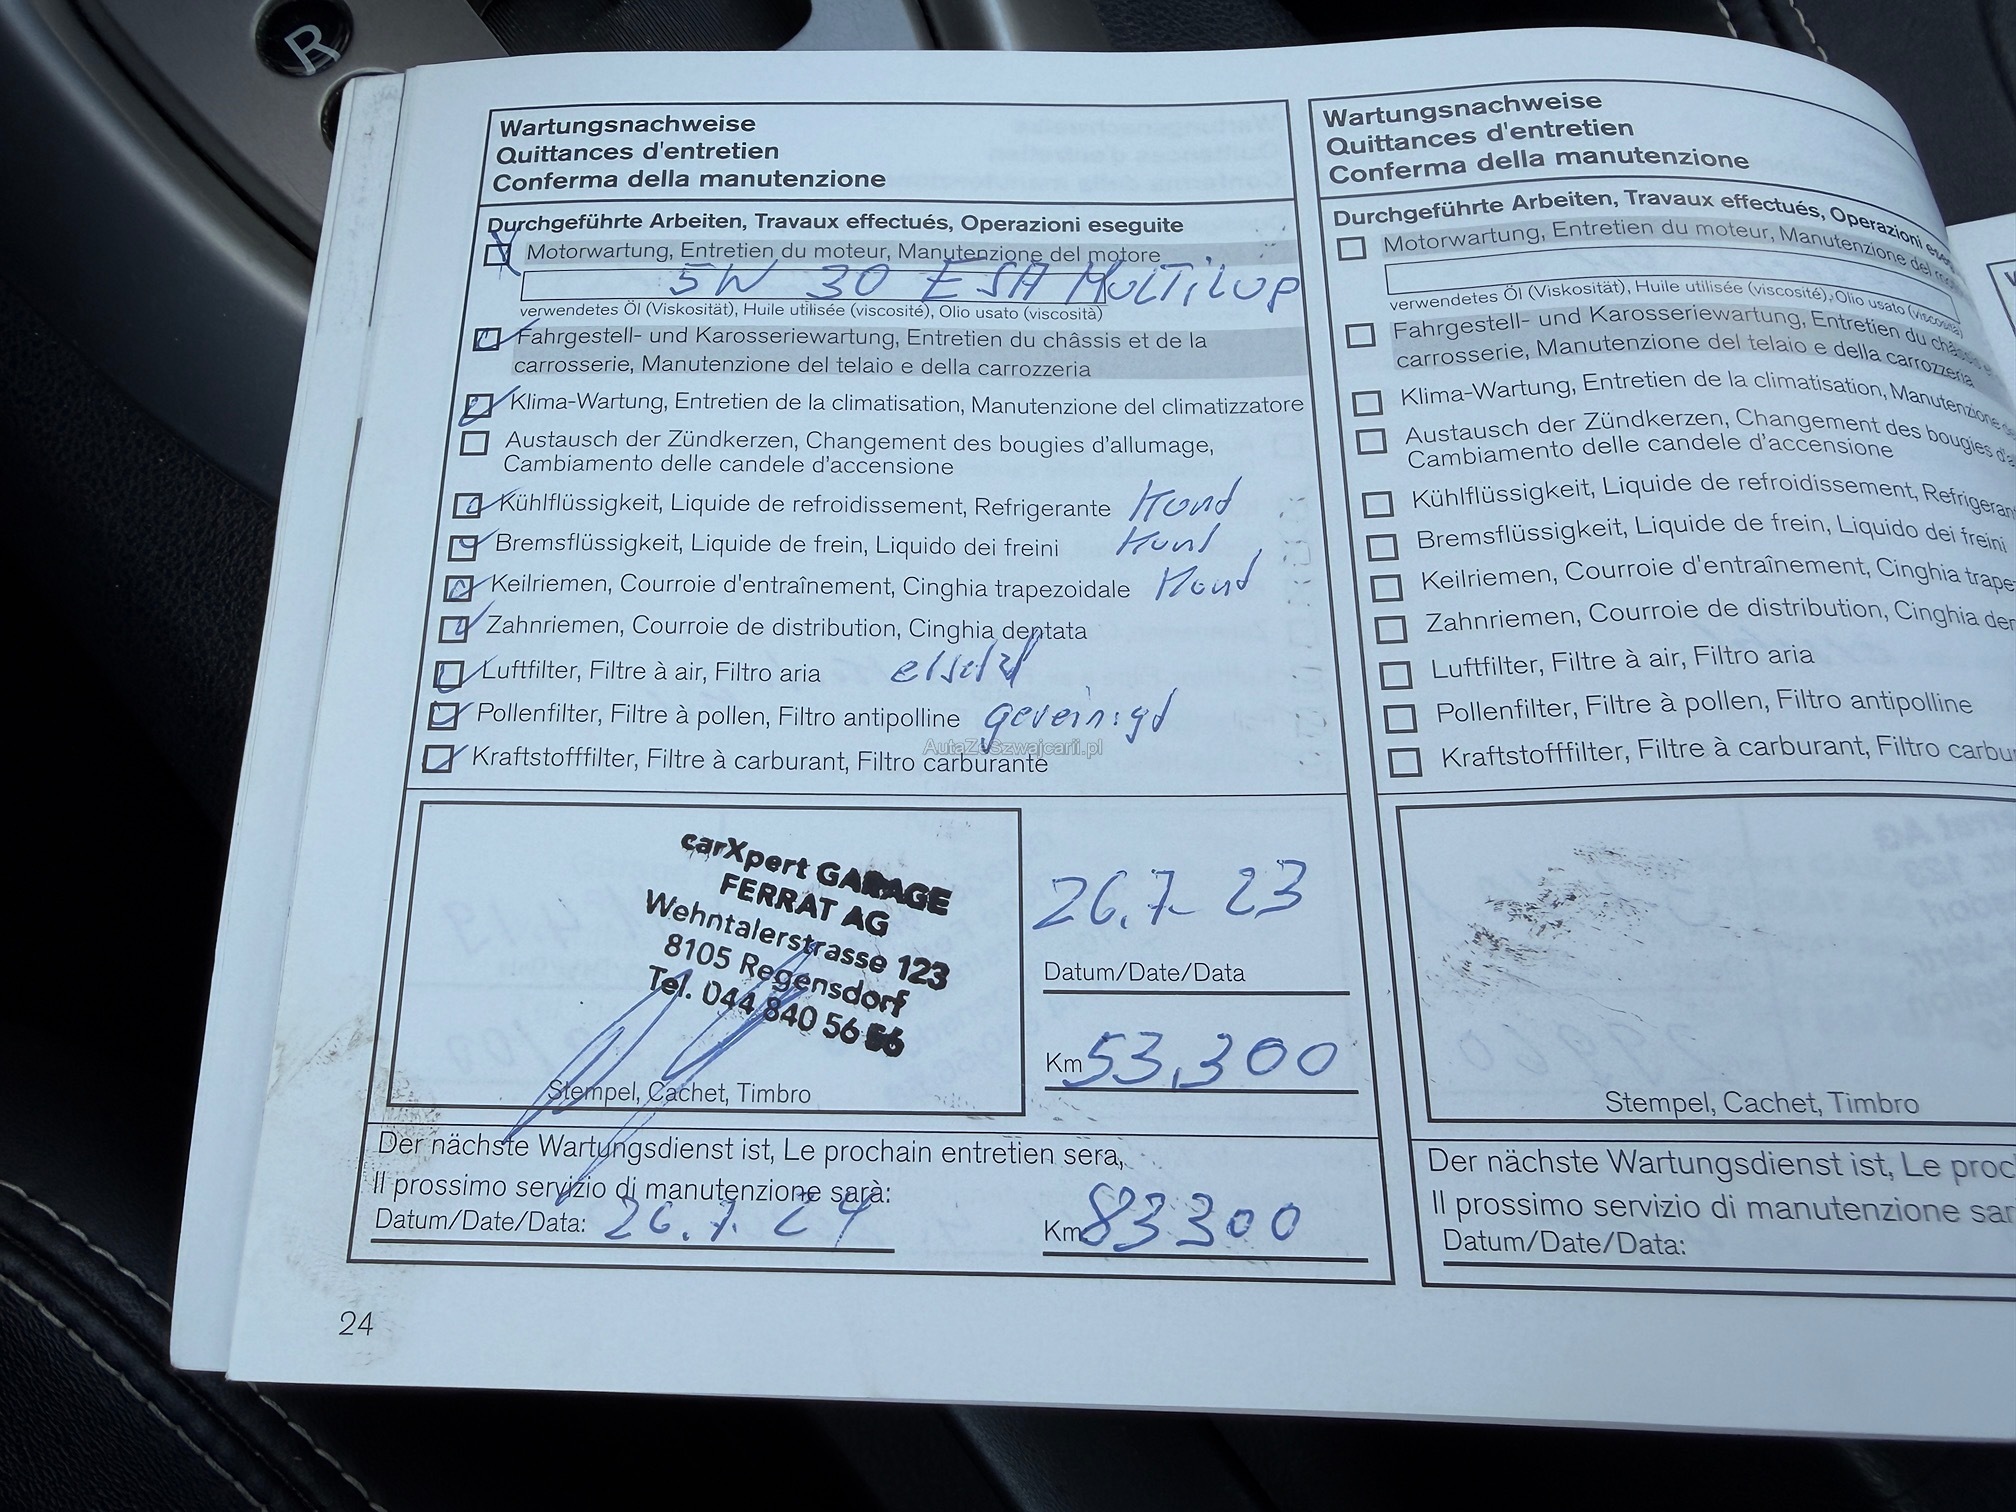 R
Wartungsnachweise
Quittances d'entretien
Conferma della manutenzione
Durchgeführte Arbeiten, Travaux effectués, Operazioni eseguite
Motorwartung, Entretien du moteur, Manutenzione del motore
5W 30 ESA MULTiLUP
verwendetes Öl (Viskosität), Huile utilisée (viscosité), Olio usato (viscosità)
Fahrgestell- und Karosseriewartung, Entretien du châssis et de la
carrosserie, Manutenzione del telaio e della carrozzeria
Klima-Wartung, Entretien de la climatisation, Manutenzione del climatizzatore
Austausch der Zündkerzen, Changement des bougies d'allumage,
Cambiamento delle candele d'accensione
Kühlflüssigkeit, Liquide de refroidissement, Refrigerante
Bremsflüssigkeit, Liquide de frein, Liquido dei freini
Keilriemen, Courroie d'entraînement, Cinghia trapezoidale
Zahnriemen, Courroie de distribution, Cinghia dentata
Luftfilter, Filtre à air, Filtro aria
Pollenfilter, Filtre à pollen, Filtro antipolline gereinigt
AutaZeSzwajcarii.pl
Kraftstofffilter, Filtre à carburant, Filtro carburante
carXpert GARAGE
FERRAT AG
Wehntalerstrasse 123
8105 Regensdorf
Tel. 044 840 56 56
Stempel, Cachet, Timbro
26.7. 23
Datum/Date/Data
Km 53,300
Der nächste Wartungsdienst ist, Le prochain entretien sera,
Il prossimo servizio di manutenzione sarà:
Datum/Date/Data: 26.7. 24 Km 83300
24
Wartungsnachweise
Quittances d'entretien
Conferma della manutenzione
Durchgeführte Arbeiten, Travaux effectués, Operazioni ese
Motorwartung, Entretien du moteur, Manutenzione del
verwendetes Öl (Viskosität), Huile utilisée (viscosité), Olio usato (viscosità)
Fahrgestell- und Karosseriewartung, Entretien du châssis
carrosserie, Manutenzione del telaio e della carrozzeria
Klima-Wartung, Entretien de la climatisation, Manutenzione
Austausch der Zündkerzen, Changement des bougies d'a
Cambiamento delle candele d'accensione
Kühlflüssigkeit, Liquide de refroidissement, Refrigeran
Bremsflüssigkeit, Liquide de frein, Liquido dei freini
Keilriemen, Courroie d'entraînement, Cinghia trape
Zahnriemen, Courroie de distribution, Cinghia den
Luftfilter, Filtre à air, Filtro aria
Pollenfilter, Filtre à pollen, Filtro antipolline
Kraftstofffilter, Filtre à carburant, Filtro carbu
Stempel, Cachet, Timbro
Der nächste Wartungsdienst ist, Le proc
Il prossimo servizio di manutenzione sar
Datum/Date/Data: